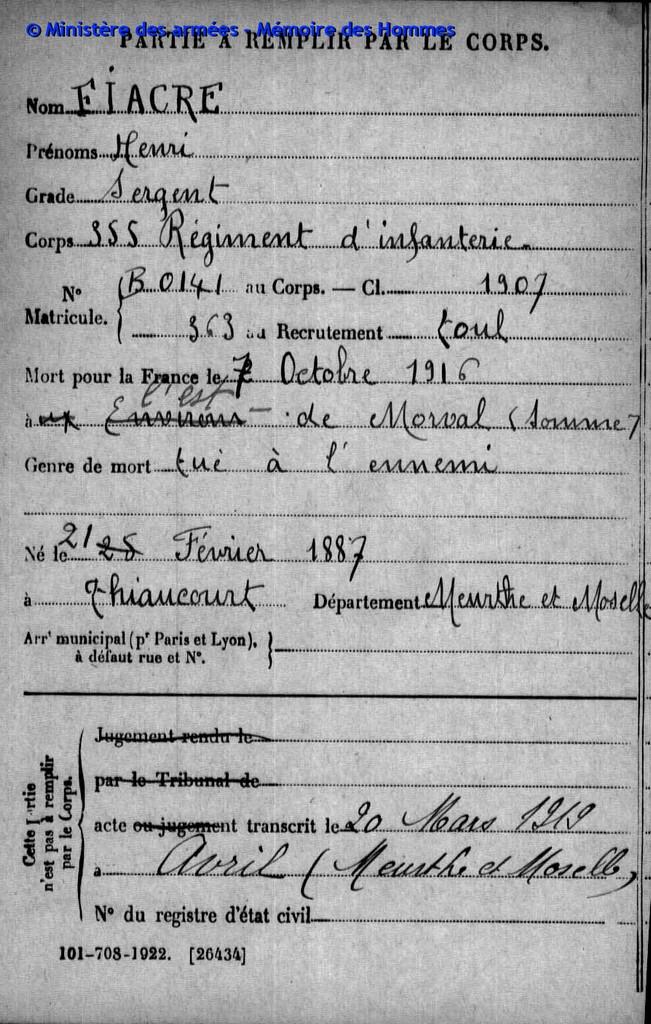 © Ministère des armées - Mémoire des Hommes
PARTIE A REMPLIR PAR LE CORPS.
Nom FIACRE
Prénoms Henri
Grade Sergent
Corps 355 Régiment d'infanterie
N° Matricule. { B 0141 au Corps. — Cl. 1907
363 au Recrutement Toul
Mort pour la France le 7 Octobre 1916
l'est
à aux Environs de Morval (Somme)
Genre de mort tué à l'ennemi
Né le 21 28 Février 1887
à Thiaucourt Département Meurthe et Moselle
Arrt municipal (pr Paris et Lyon), à défaut rue et N°. }
Cette partie n'est pas à remplir par le Corps.
Jugement rendu le
par le Tribunal de
acte ou jugement transcrit le 20 Mars 1919
à Avril (Meurthe et Moselle)
N° du registre d'état civil
101-708-1922. [26434]